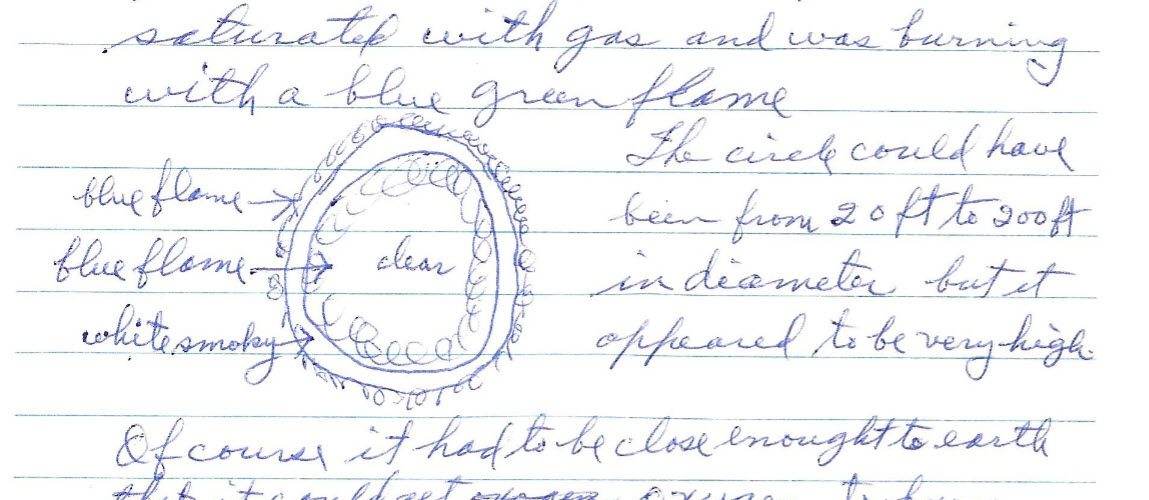 saturated with gas and was burning
with a blue green flame
The circle could have
been from 20 ft to 200 ft
in diameter but it
appeared to be very high.
blue flame
blue flame
clear
white smoky
Of course it had to be close enought to earth
that it could get oxygen